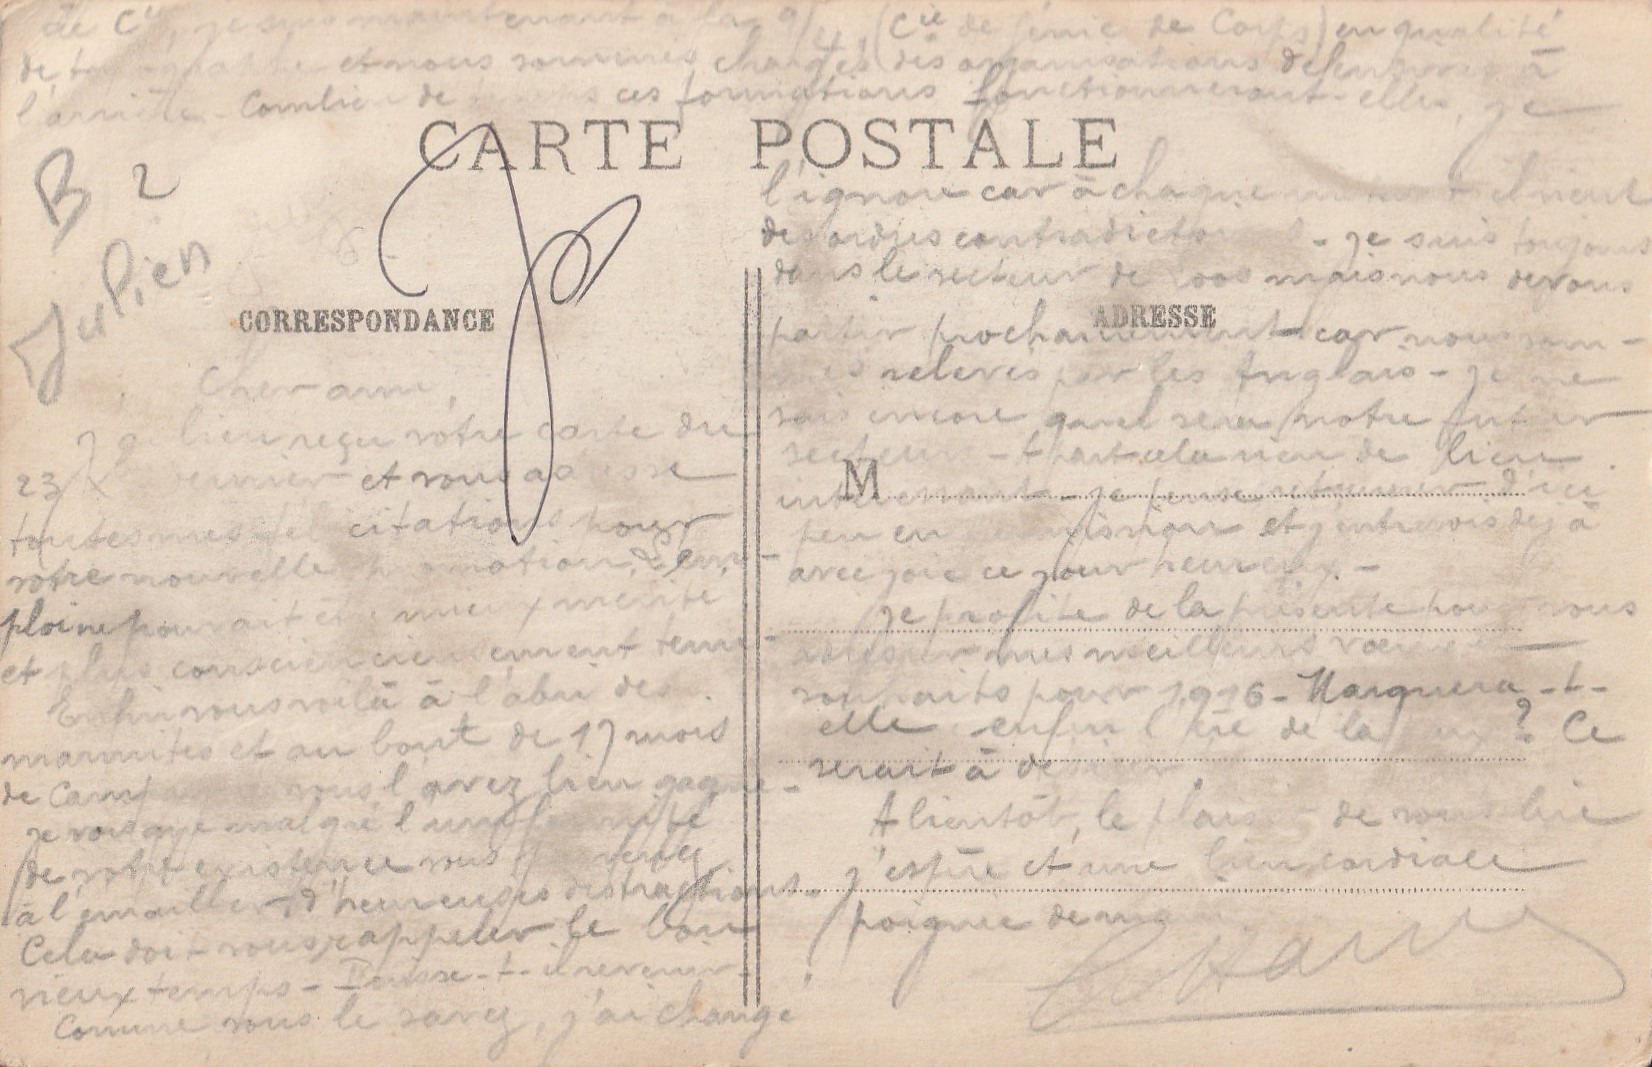 CARTE POSTALE
B 2
Julien
CORRESPONDANCE
Cher ami,
J'ai bien reçu votre carte du
23 X dernier et vous adresse
toutes mes félicitations pour
votre nouvelle promotion.
pouvait être mieux mérité
et plus consciencieusement
Enfin vous voilà à l'abri des
marmites et au bout de 17 mois
de campagne vous l'avez bien gagné.
je vois que malgré l'uniformité
de votre existence vous
à l'émailler d'heureuses distractions.
Cela doit vous rappeler le bon
vieux temps - Puisse-t-il revenir.
Comme vous le savez, j'ai changé
de Cie, je suis maintenant à la 9/4, (Cie de génie de Corps) en qualité
de topographe et nous sommes chargés des organisations défensives à
l'arrière - Combien de temps ces formations fonctionneront-elles, je
l'ignore car à chaque instant il vient
des ordres contradictoires - je suis toujours
dans le secteur de mais nous devons
partir prochainement car nous som-
mes relevés par les Anglais - je ne
sais encore quel sera notre futur
secteur - A part cela rien de bien
intéressant - je pense retourner d'ici
peu en permission et j'entrevois déjà
avec joie ce jour heureux. -
je profite de la présente pour vous
adresser mes meilleurs vœux
souhaits pour 1916 - Marquera-t-
elle enfin l'ère de la paix ? Ce
serait à désirer
A bientôt, le plaisir de vous lire
j'espère et une bien cordiale
poignée de main
ADRESSE
M